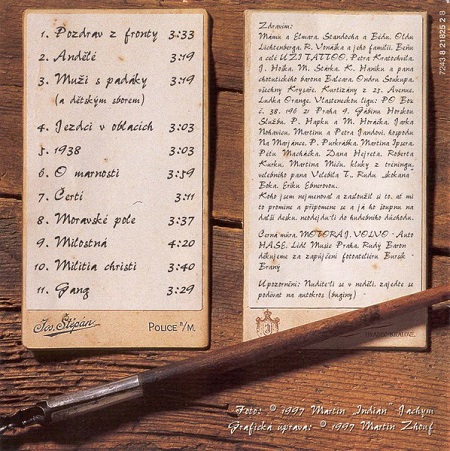 1. Pozdrav z fronty 3:33
2. Andělé 3:19
3. Muži s padáky 3:19
(a dětským sborem)
4. Jezdci v oblacích 3:03
5. 1938 3:03
6. O marnosti 3:59
7. Čerti 3:11
8. Moravské pole 3:37
9. Milostná 4:20
10. Militia christi 3:40
11. Gang 3:29
Jos. Štěpán
POLICE n/M.
Zdravím:
Mámu a Elmara, Standocha a Bédu, Oldu
Lichtenberga, R. Vonáška a jeho familii, Beňu
a celé UŽI TATTOO, Petra Kratochvíla,
J. Hoška, M. Šánka, K. Hanku a pana
chotutického barona Balcara, Ondru Soukupa
všechny Kryšáče, Kurtizány z 25. Avenue,
Luďka Orange, Vlasteneckou ligu: P.O. Box
č. 38, 196 21 Praha 9, Gábinu Horskou
Službu, P. Hapku a M. Horáčka, Jarka
Nohavicu, Martinu a Petra Jandovi, hospodu
Na Marjánce, P. Purkrábka, Martina Ipsera,
Péťu Macháčka, Dana Hejreta, Roberta
Kurku, Martina Miču, kluky z tréningu,
velebného pana Vebílka T., Rudu
Boka, Eriku Ebnerovou.
Koho jsem nejmenoval a zaslouží si to, ať mi
to promine a připomene se a já ho šoupnu na
další desku, neodejdu-li do hudebního důchodu.
Černá můra, MOTORAJ, VOLVO - Auto
HASE, Lídl Music Praha, Rudý Baron
děkujeme za zapůjčení fotoateliéru Bursík -
Brany
Upozornění: Nudíte-li se v neděli, zajeďte se
podívat na autokros (buginy)
7243 8 21825 2 8
Foto: © 1997 Martin "Indián" Jáchym
Grafická úprava: © 1997 Martin Zhouf